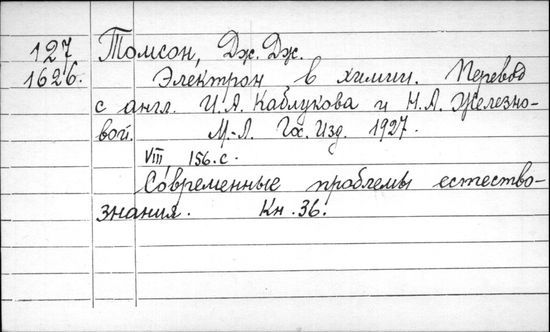 127 Томсон, Дж. Дж.
1626. Электрон в химии. Перевод
с англ. И.А. Каблукова и Н.А. Железно-
вой. М-Л. Гос. Изд. 1927.
VIII, 156. с.
Современные проблемы естество-
знания. Кн. 36.